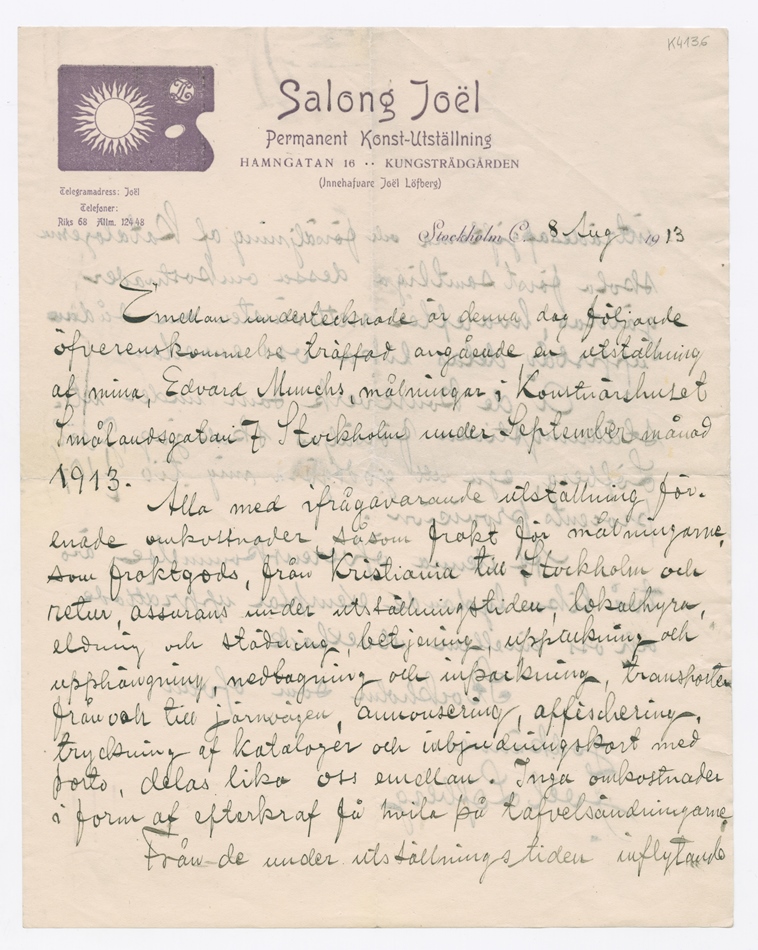 K4136
Salong Joël
Permanent Konst-Utställning
HAMNGATAN 16 ·· KUNGSTRÄDGÅRDEN
(Innehafvare Joël Löfberg)
Telegramadress: Joël
Telefoner:
Riks 68 Allm. 124 48
Stockholm C. 8 Aug 1913
Emellan undertecknade är denna dag följande
öfverenskommelse träffad angående en utställning
af mina, Edvard Munchs, målningar i Konstnärshuset
Smålandsgatan 7 Stockholm under September månad
1913.
Alla med ifrågavarande utställning för-
enade omkostnader såsom frakt för målningarne,
som fraktgods, från Kristiania till Stockholm och
retur, assurans under utställningstiden, lokalhyra,
eldning och städning, betjening, uppackning och
upphängning, nedtagning och inpackning, transporter
från och till järnvägen, annonsering, affischering,
tryckning af kataloger och inbjudningskort med
porto, delas lika oss emellan. Inga omkostnader
i form af efterkraf få hvila på tafvelsändningarne.
Från de under utställningstiden inflytande